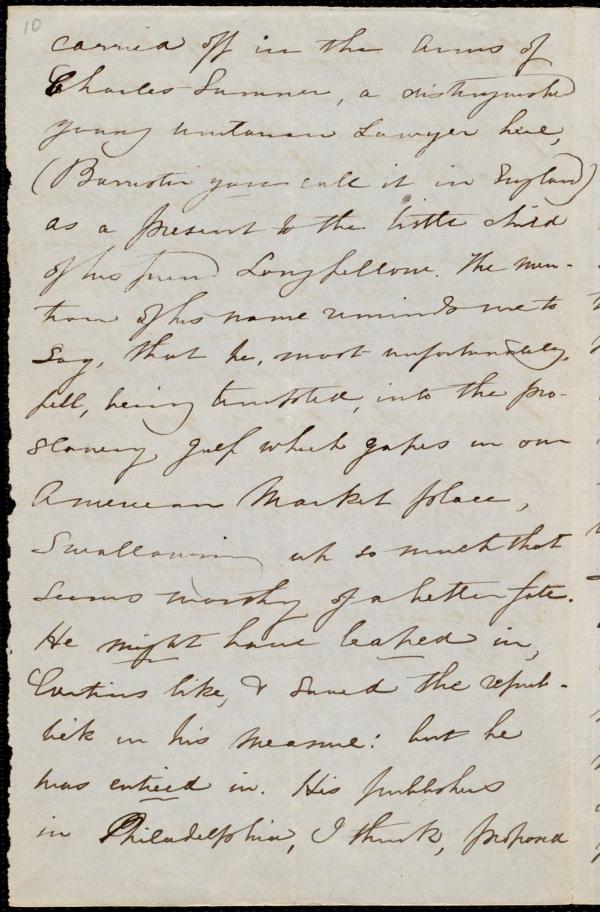 10
carried off in the arms of
Charles Sumner, a distinguished
young Unitarian Lawyer here,
(Barrister you call it in England)
as a present to the little child
of his friend Longfellow. The men-
tion of his name reminds me to
say, that he, most unfortunately,
fell, being tempted, into the pro-
slavery gulf which gapes in our
American Market place,
Swallowing up so much that
seems worthy of a better fate.
He might have leaped in,
Curtius like, & saved the repub-
lick in his measure: but he
was enticed in. His publishers
in Philadelphia, I think, proposed